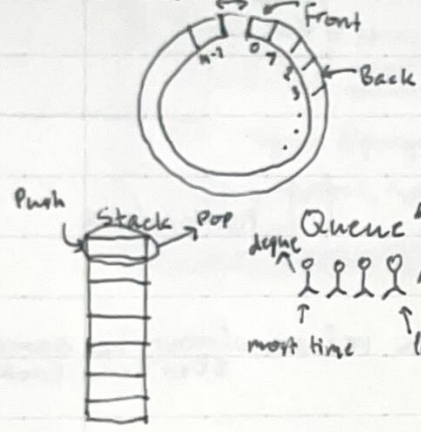 Front
n-1 0 1 2 3
Back
Push
Stack
Pop
Queue
deque
most time